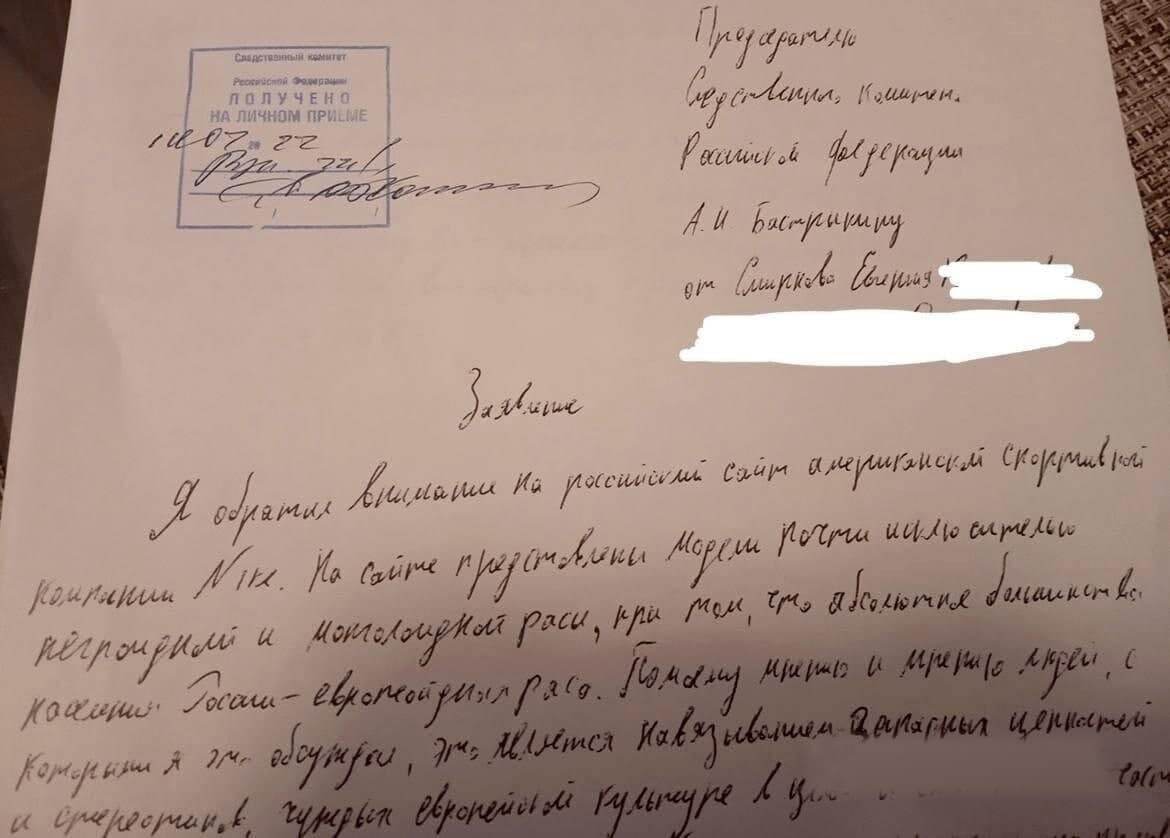 Следственный комитет
Российской Федерации
ПОЛУЧЕНО
НА ЛИЧНОМ ПРИЕМЕ
20 22
Председателю
Следственного комитета
Российской Федерации
А.И Бастрыкину
от Смирнова Евгения
Заявление
Я обратил внимание на российский сайт американской спортивной
компании Nike. На сайте представлены модели почти исключительно
негроидной и монголоидной расы, при том, что абсолютное большинство
населения России - европеоидная раса. По моему мнению и мнению людей, с
которыми я это обсуждал, это является навязыванием западных ценностей
и стереотипов, чуждых европейской культуре в